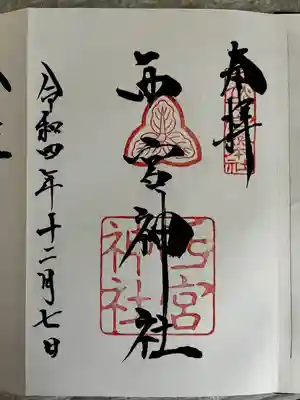 奉拝
西宮神社
西宮神社
令和四年十二月七日